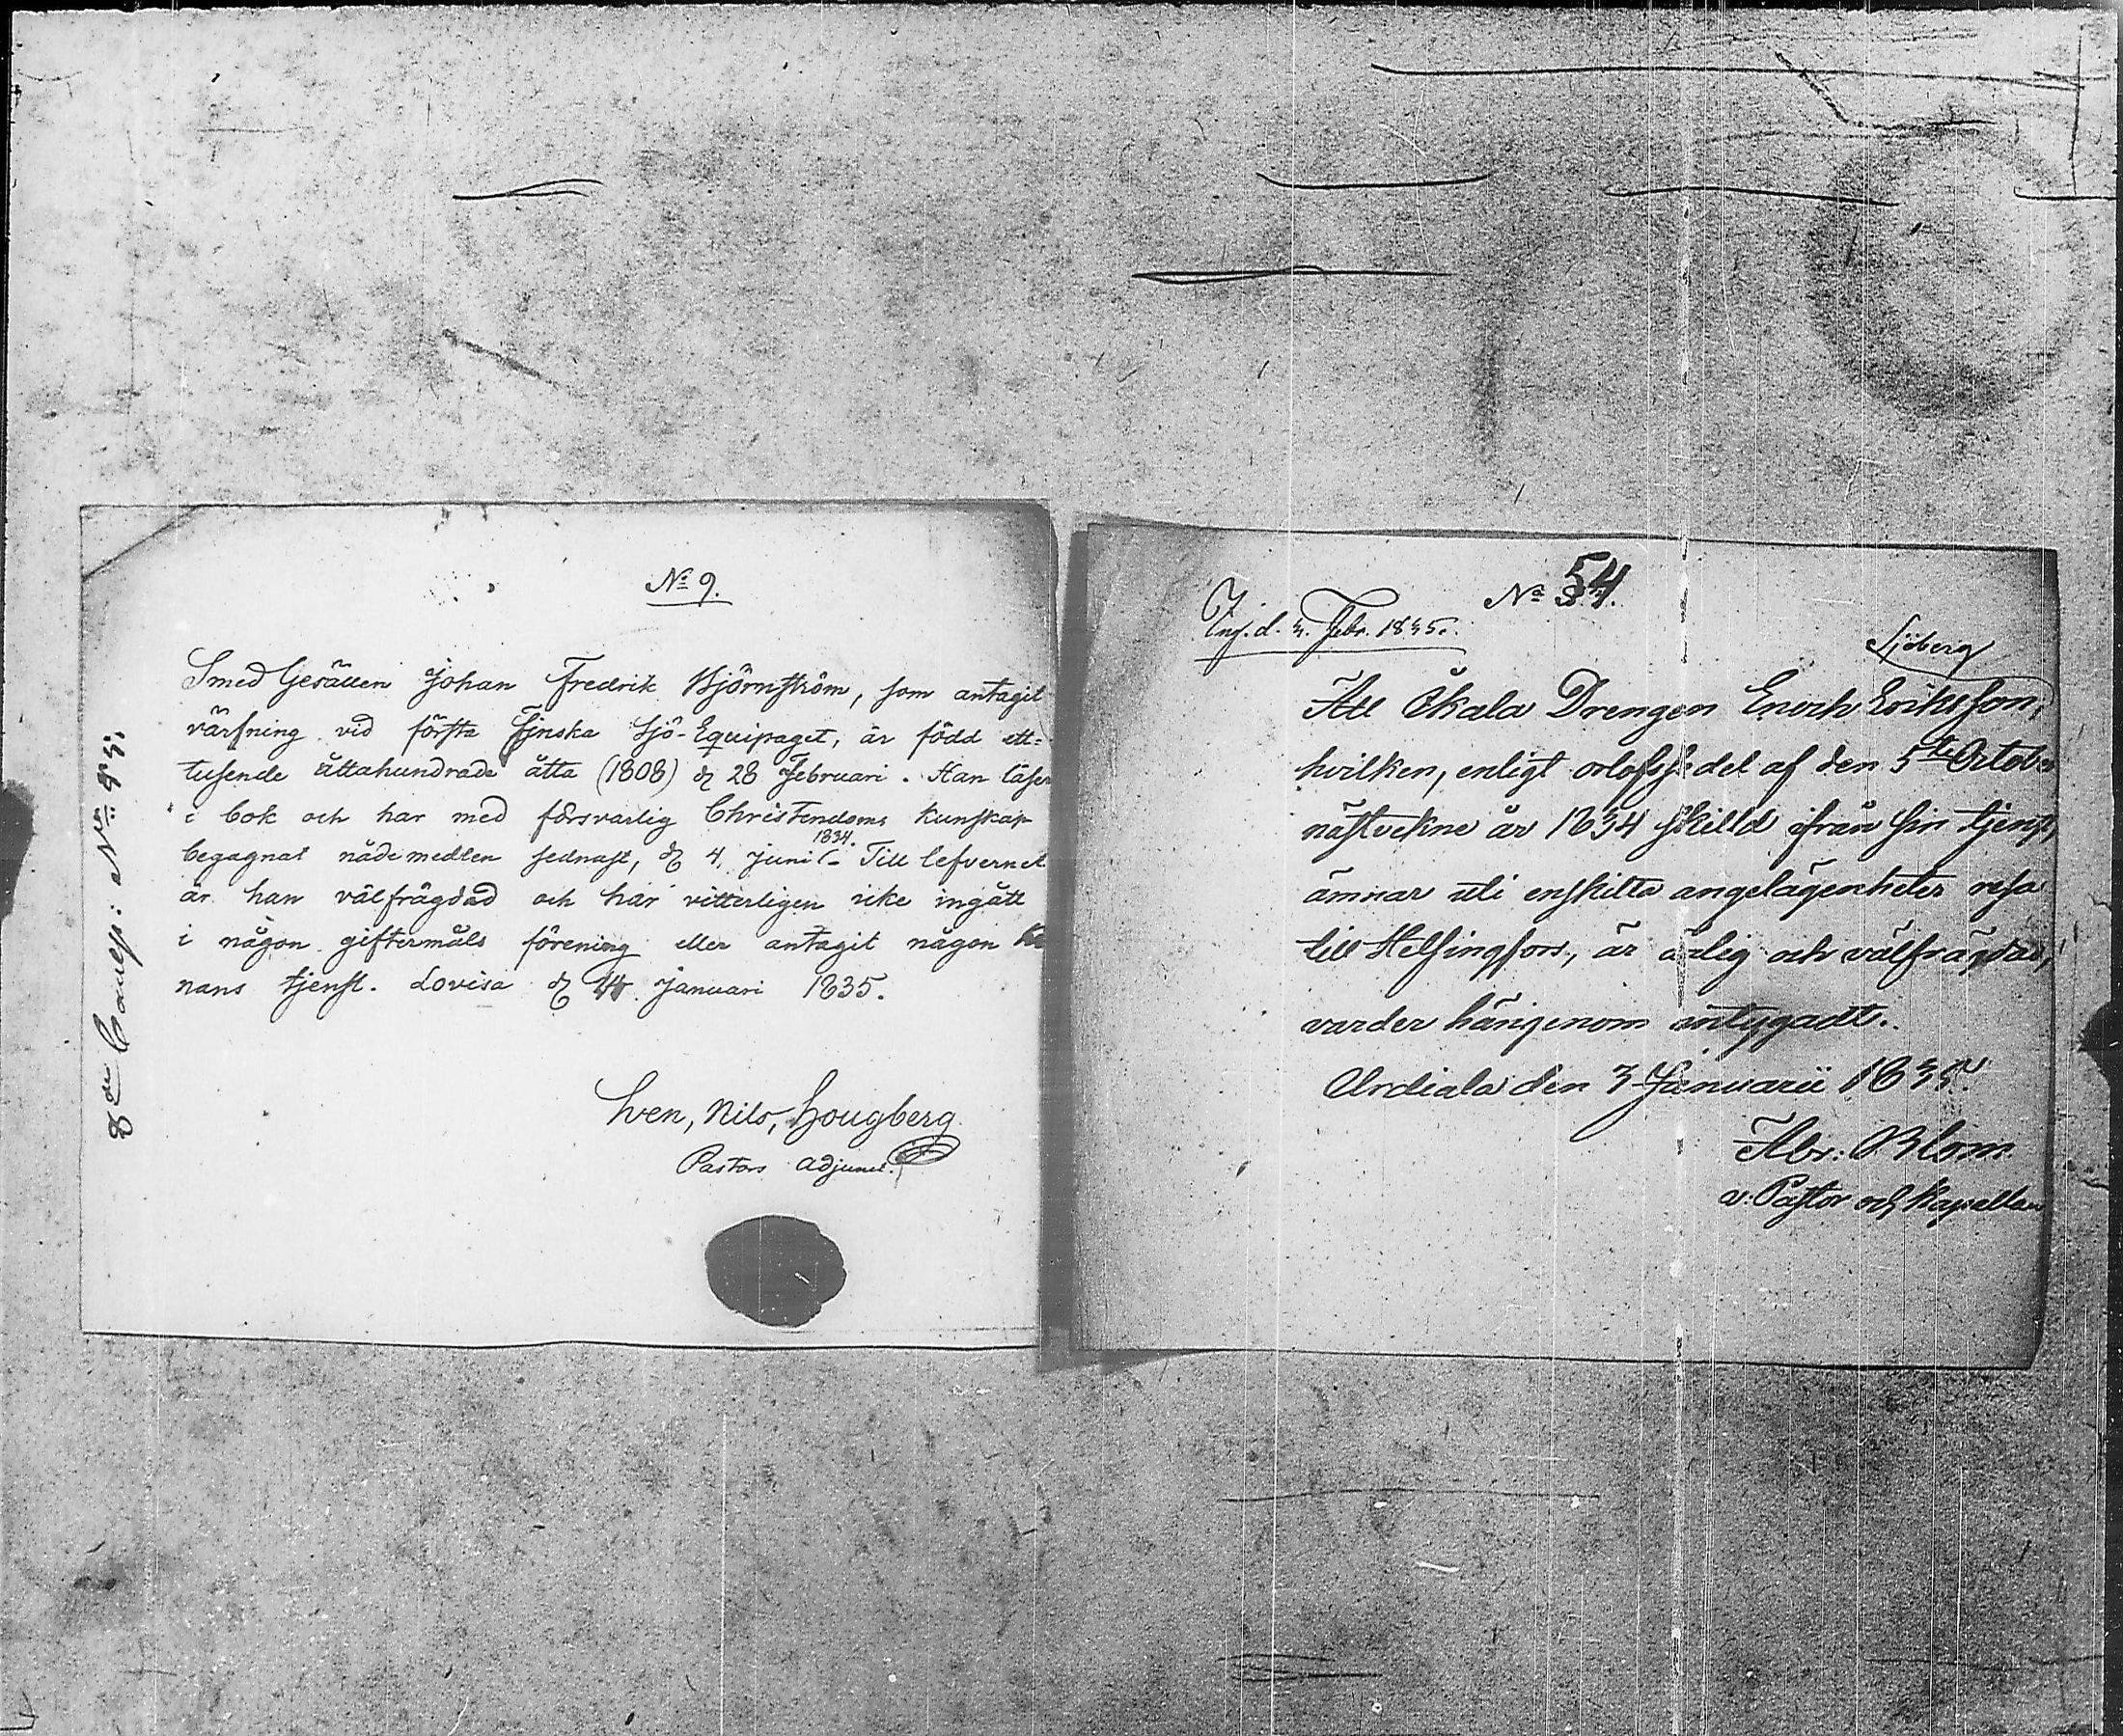 No 9.
Smed Gesällen Johan Fredrik Björnström, som antagit
värfning vid första Finska Sjö-Equipaget, är född ett=
tusende åttahundrade åtta (1808) d 28 Februari. Han läser
i bok och har med försvarlig Christendoms kunskap
begagnat nådemedlen sednast, d 4 Juni 1834. Till lefvernet
är han välfrägdad och har vitterligen icke ingått
i någon giftermåls förening eller antagit någon
nans tjenst. Lovisa d Januari 1835.
Sven, Nils, Hougberg
Pastors Adjunct.
8de Comp: No: 45.
No 54.
Ing. d. 3. Febr. 1835.
Sjöberg
Att Ökala Drengen Enoch Eriksson,
hvilken, enligt orlofssedel af den 5te October
nästvekne år 1834 skilld ifrån sin tjenst,
ämnar uti enskilta angelägenheter resa
till Helsingfors, är ärlig och välfrägdad,
varder härigenom intygadt.
Urdiala den 3 Januarii 1835.
Abr: Blom
v: Pastor och Kapellan